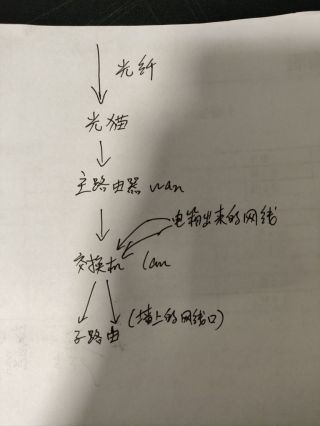 光纤
光猫
主路由器 wan
电箱出来的网线
交换机 lan
子路由 (墙上的网线口)